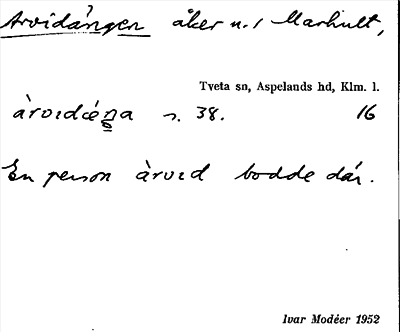 Arvidängen åker n. / Marhult,
Tveta sn, Aspelands hd, Klm. l.
àrvıdæŋa s. 38. 16
En person àrvıd bodde där.
Ivar Modéer 1952